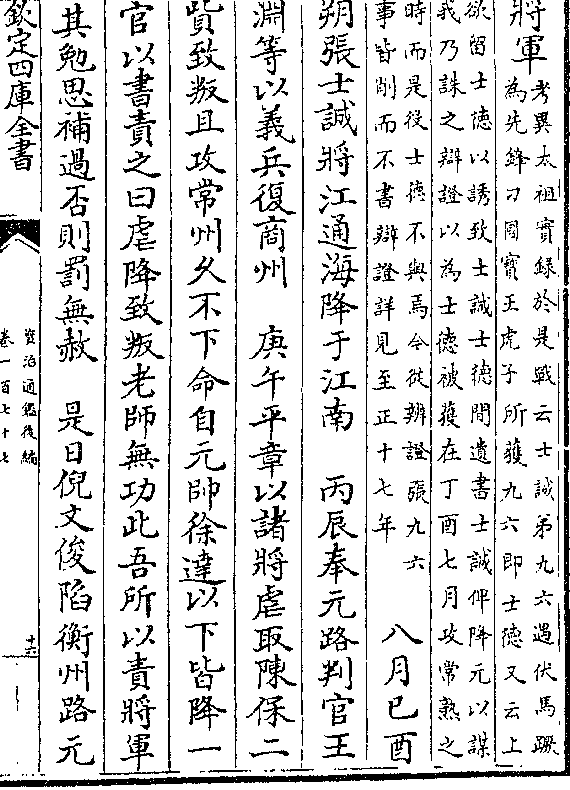 將軍
考異太祖實録於是戰云士誠弟九六遇伏馬蹶
為先鋒刁國寶王虎子所獲九六即士德又云上
欲留士德以誘致士誠士德間遺書士誠俾降元以謀
我乃誅之辯證以為士德被獲在丁酉七月攻常熟之
時而是役士德不與焉今從辨證張九六
事皆削而不書辯證詳見至正十七年
八月已酉
朔張士誠將江通海降于江南　丙辰奉元路判官王
淵等以義兵復商州　庚午平章以諸將虐取陳保二
貲致叛且攻常州久不下命自元帥徐達以下皆降一
官以書責之曰虐降致叛老師無功此吾所以責將軍
其勉思補過否則罰無赦　是日倪文俊陷衡州路元
欽定四庫全書
資治通鑑後編
卷一百七十七
十六